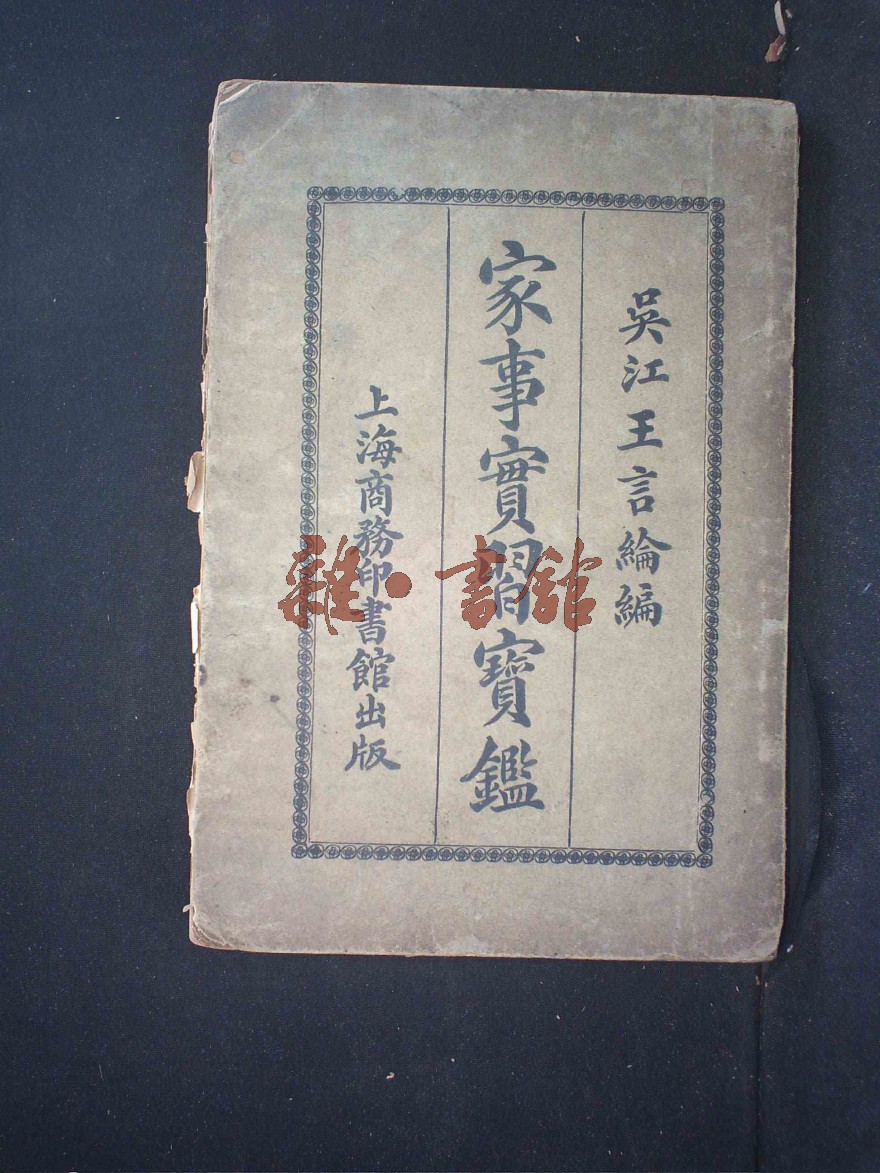 吳江王言綸編
家事實習寶鑑
上海商務印書館出版
雜·書館